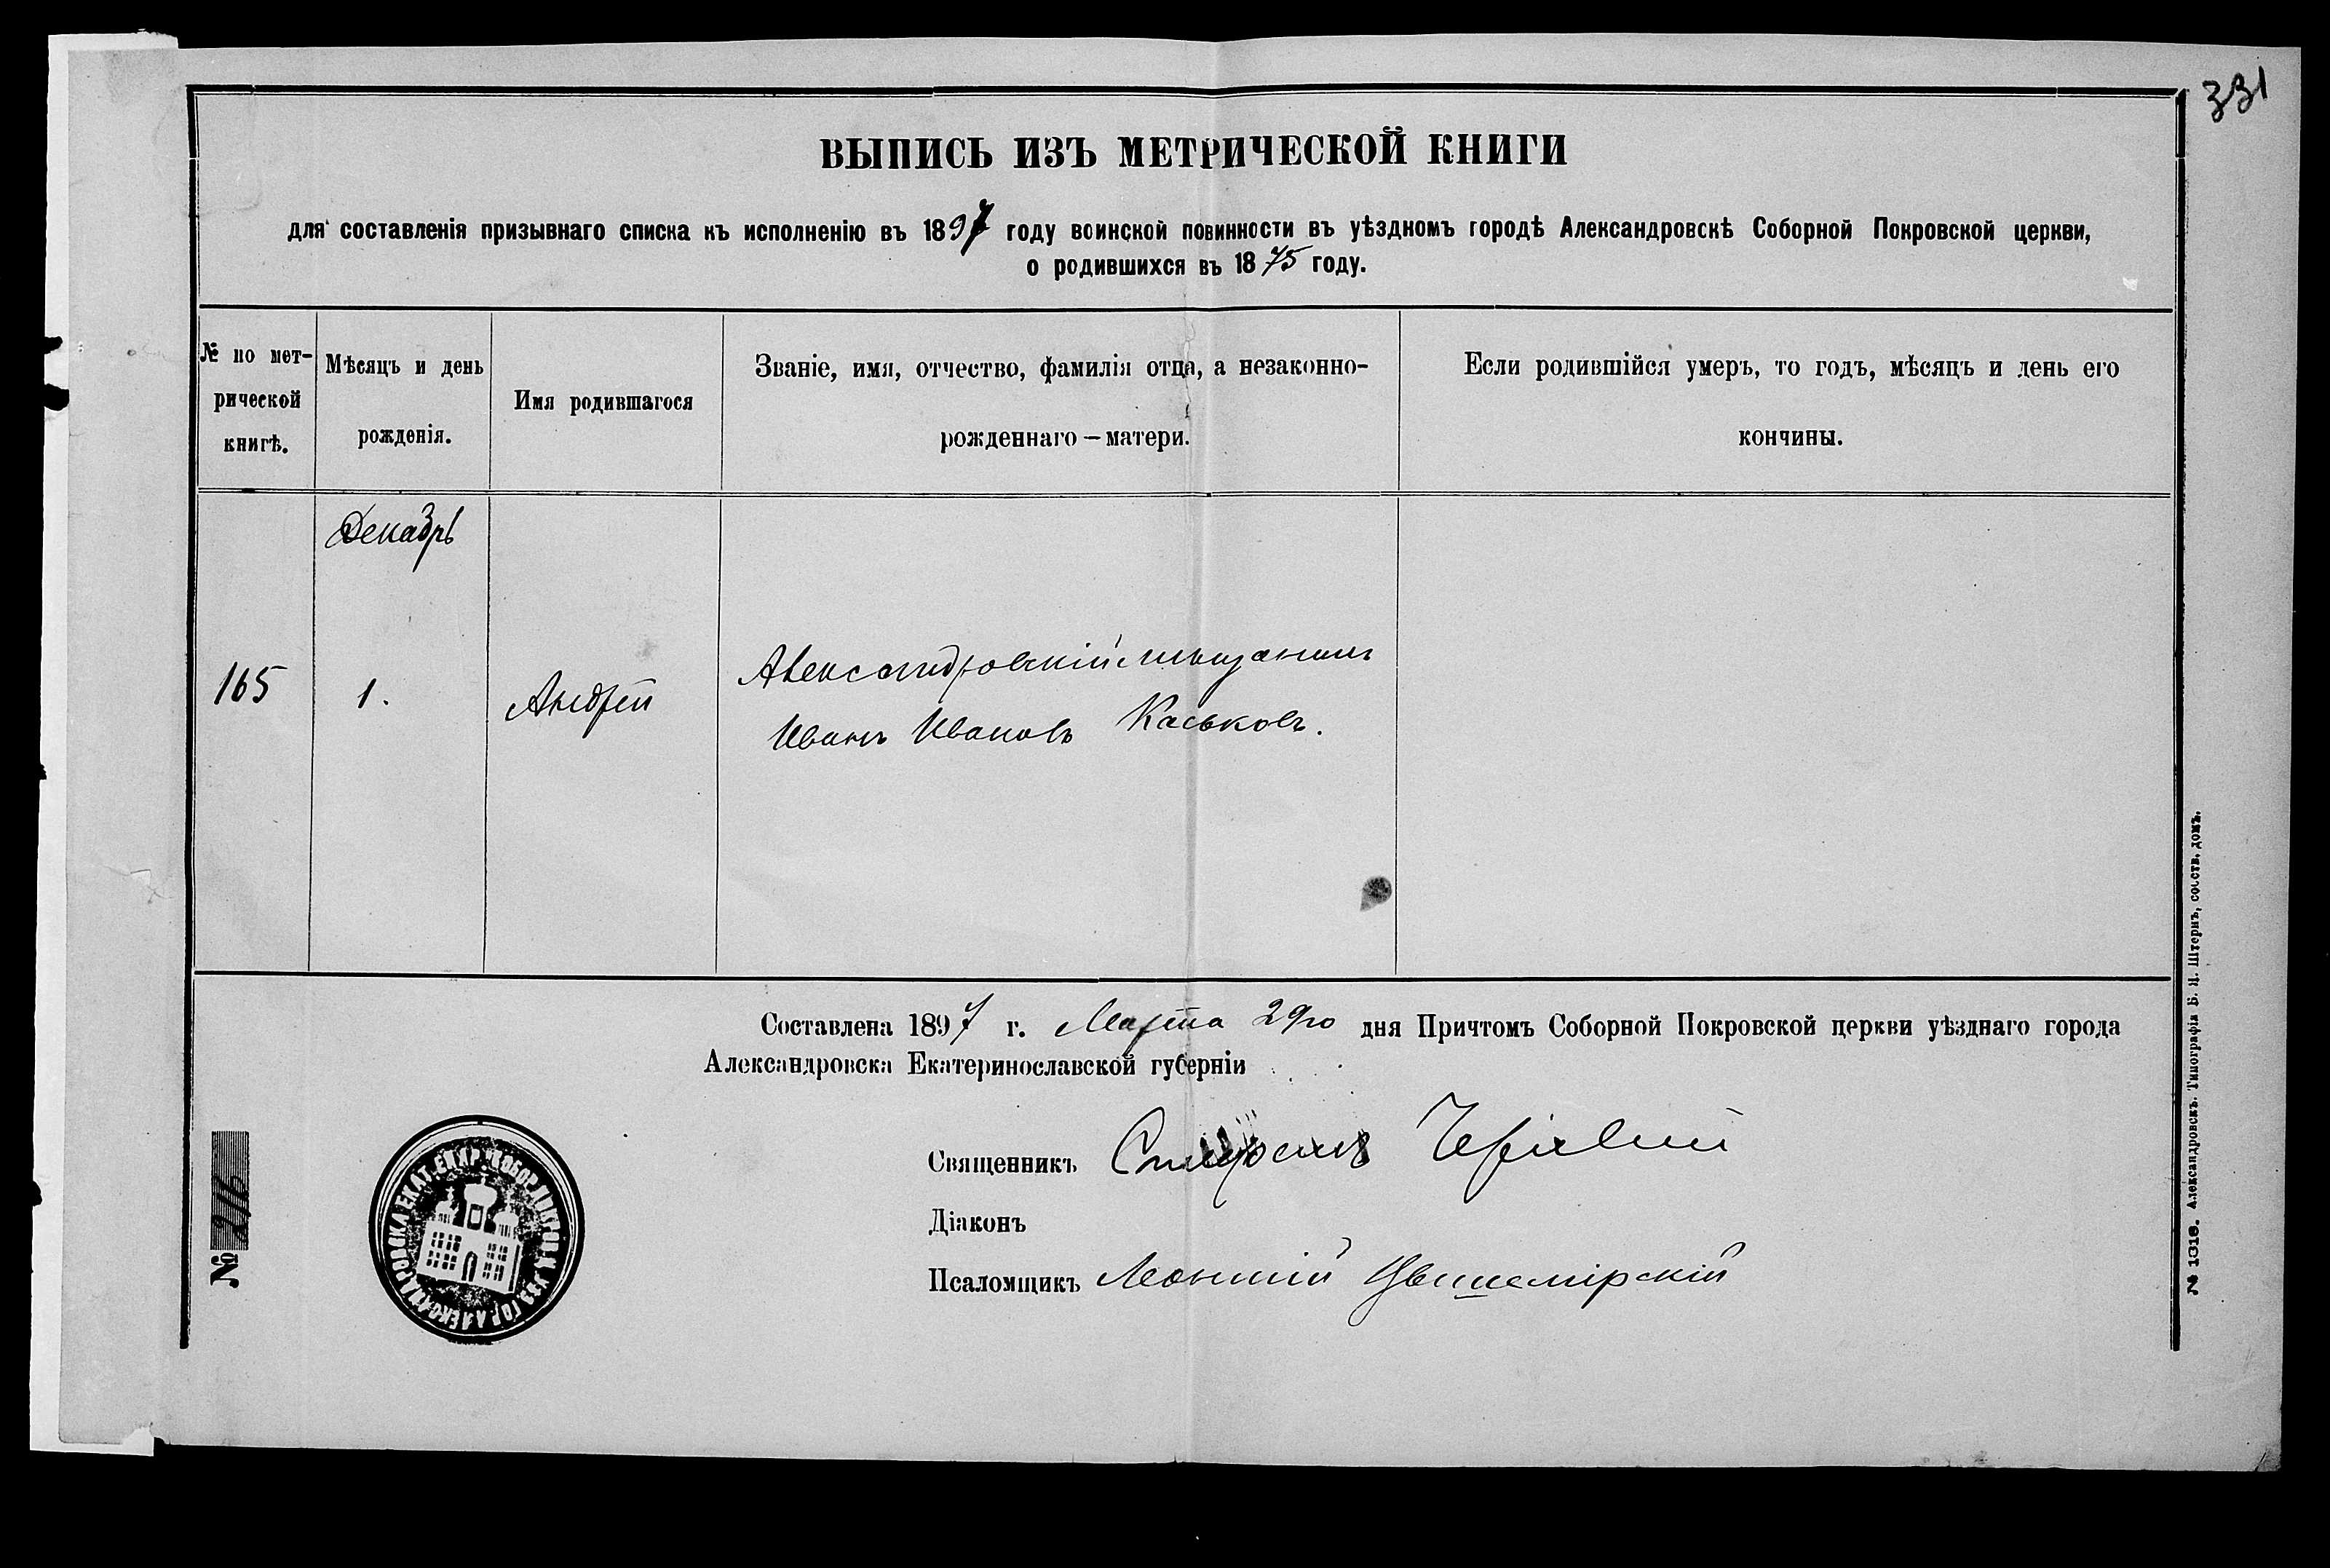 331
ВЫПИСЬ ИЗЪ МЕТРИЧЕСКОЙ КНИГИ
для составленія призывнаго списка къ исполненію въ 1897 году воинской повинности въ уѣздномъ городѣ Александровскѣ Соборной Покровской церкви,
о родившихся въ 1875 году.
№ по мет-
рической
книгѣ.
Мѣсяцъ и день
рожденія.
Имя родившагося
Званіе, имя, отчество, фамилія отца, а незаконно-
рожденнаго — матери.
Если родившійся умеръ, то годъ, мѣсяцъ и день его
кончины.
Декабрь
165
1.
Андрей
Александровскій мѣщанинъ
Иванъ Ивановъ Каськовъ.
Составлена 1897 г. Марта 29го дня Причтомъ Соборной Покровской церкви уѣзднаго города
Александровска Екатеринославской губерніи
Священникъ
Діаконъ
Псаломщикъ
№ 216
№ 1318. Александровскъ. Типографія Б. Я. Штернъ, собств. домъ.